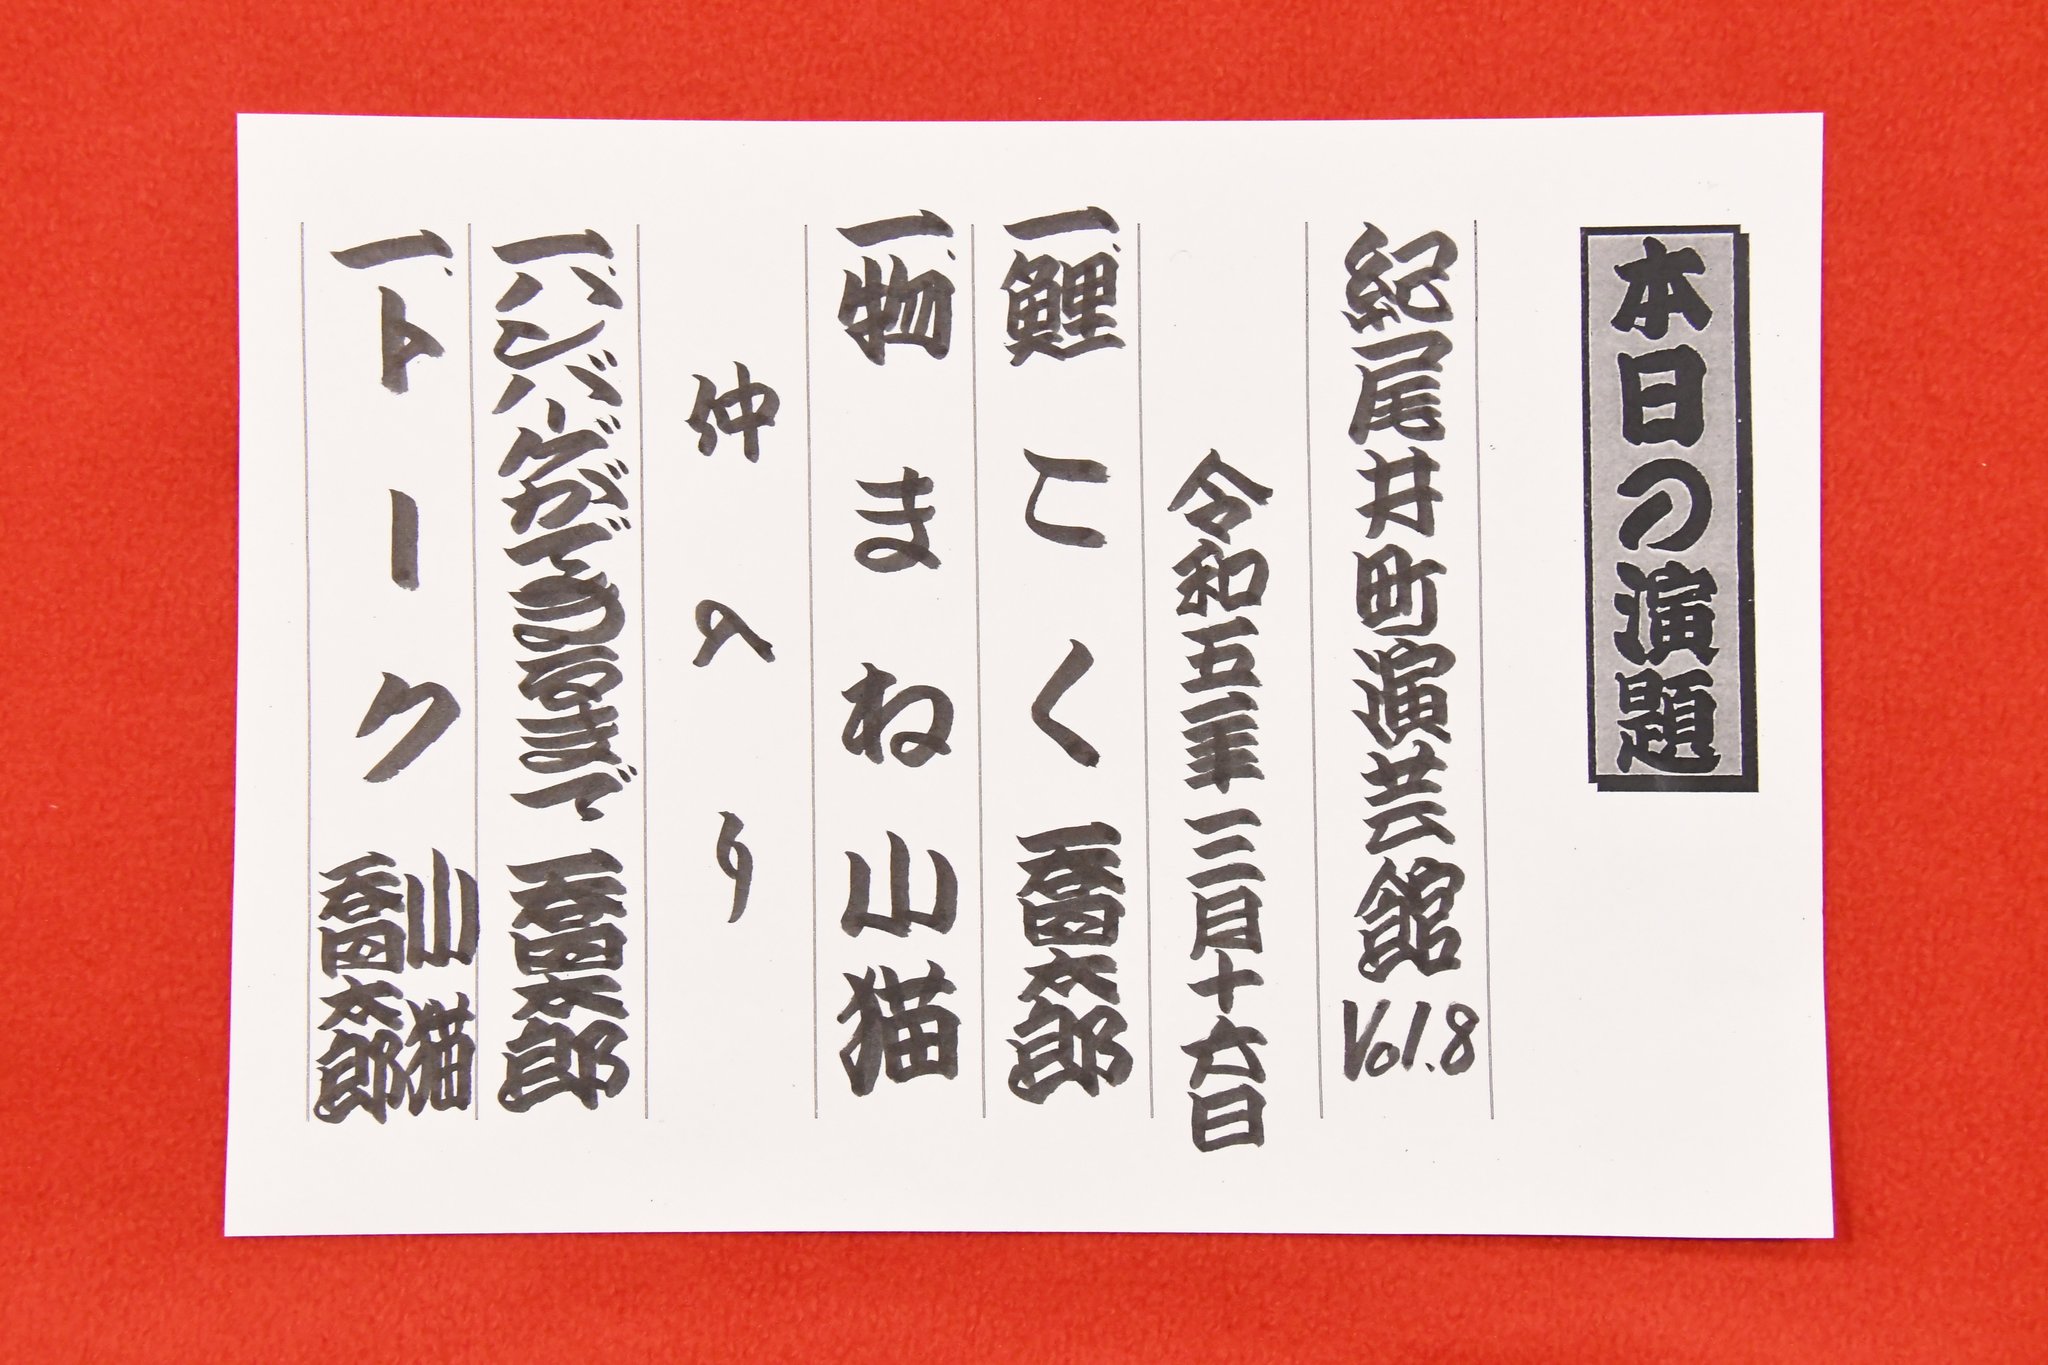 本日の演題
紀尾井町演芸館 Vol.8
令和五年三月十六日
一、鯉こく 喬太郎
一、物まね 小猫
仲入り
一、ハンバーグができるまで 喬太郎
一、トーク 小猫
喬太郎